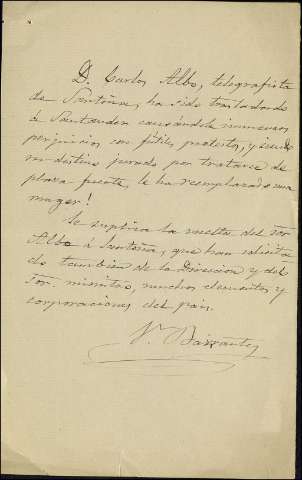 D. Carlos Albo, telegrafista
de Santoña, ha sido trasladado
á Santander causándole inmensos
perjuicios con fútiles pretextos, y siendo
su destino jurado por tratarse de
plaza fuerte, le ha reemplazado una
muger!
Se suplica la vuelta del Sor
Albo á Santoña, que han solicita
do tambien de la Direccion y del
Sor. ministro, muchos elementos y
corporaciones del pais.
V. Barrantes